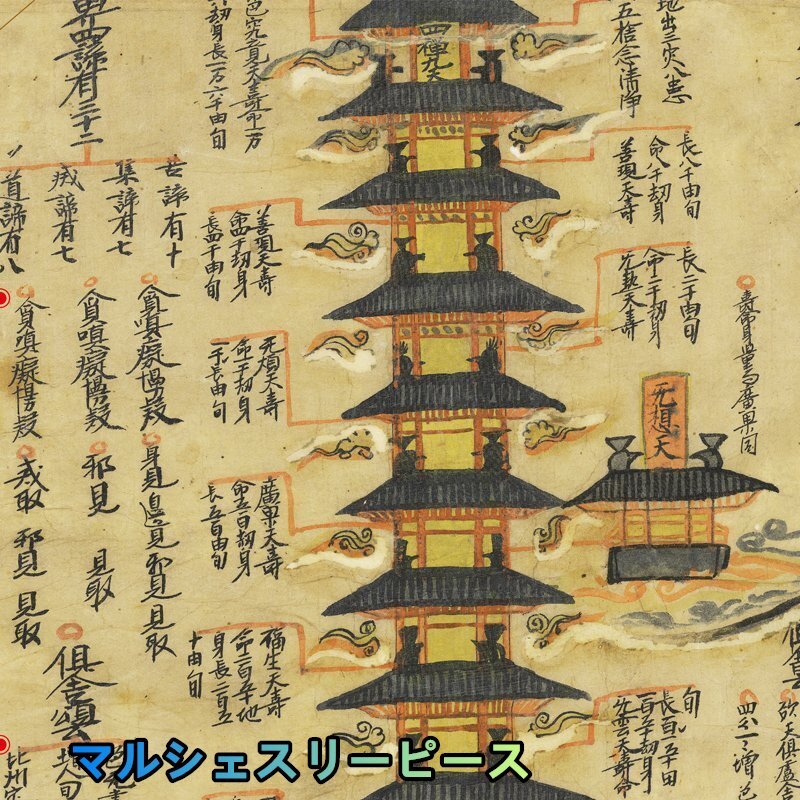 地出三灾八患
五捨念清净
四禪九天
色究竟天壽命一万
劫身長一万六千由旬
界四諦有三十二
善現天壽
命八千劫身
長八千由旬
无熱天壽
命二千劫身
長二千由旬
壽命身量与廣果同
无想天
善現天壽
命四千劫身
長四千由旬
无煩天壽
命千劫身
廣果天壽
命五百劫身
長五百由旬
福生天壽
十由旬
无雲天壽命
百五十劫身
長百五十由
旬
苦諦有十
集諦有七
滅諦有七
道諦有八
貪嗔癡慢疑
身見邊見邪見見取
貪嗔癡慢疑
邪見 見取
貪嗔癡慢疑
戒取 邪見 見取
俱舍頌
マルシェスリーピース